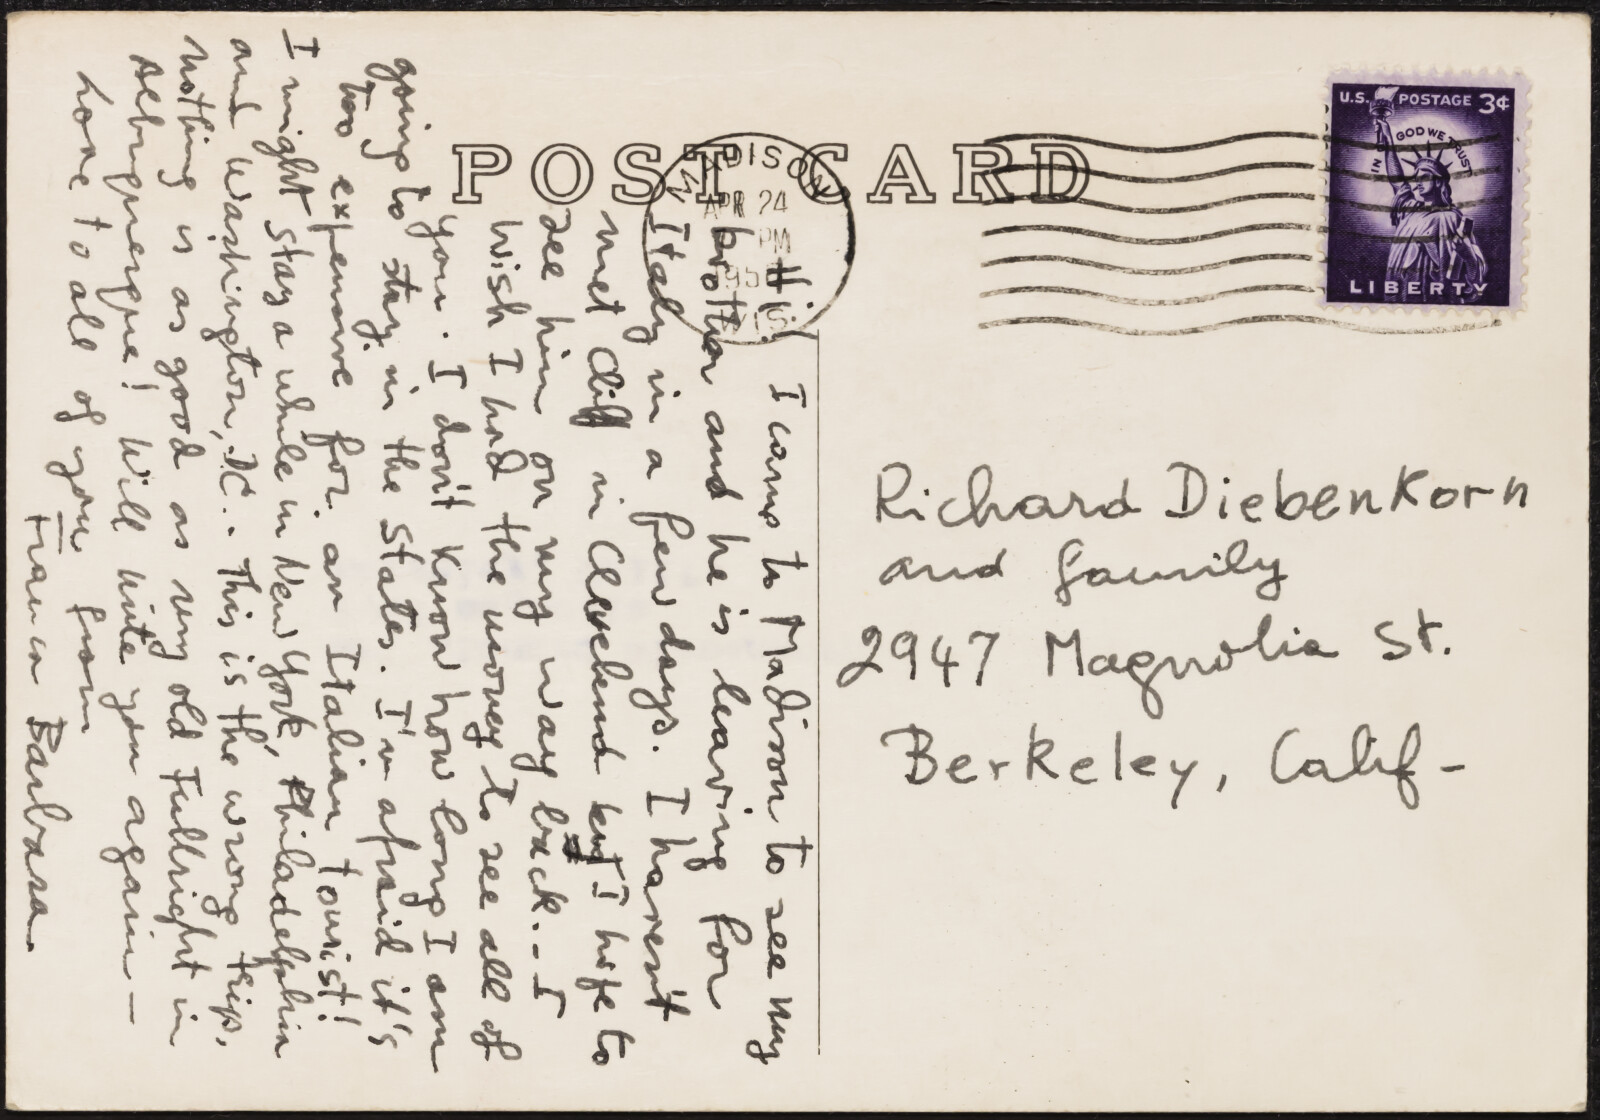 POST CARD
MADISON
APR 24
PM
WIS.
U.S. POSTAGE 3¢
IN GOD WE TRUST
LIBERTY
Hi! I came to Madison to see my
brother and he is leaving for
Italy in a few days. I haven't
met Cliff in Cleveland but I hope to
see him on my way back... I
wish I had the money to see all of
you. I don't know how long I am
going to stay in the States. I'm afraid it's
too expensive for an Italian tourist!
I might stay a while in New York, Philadelphia
and Washington, DC.. This is the wrong trip,
nothing is as good as my old Fulbright in
Albuquerque! Will write you again —
Love to all of you from
Franca Barbara
Richard Diebenkorn
and family
2947 Magnolia St.
Berkeley, Calif-